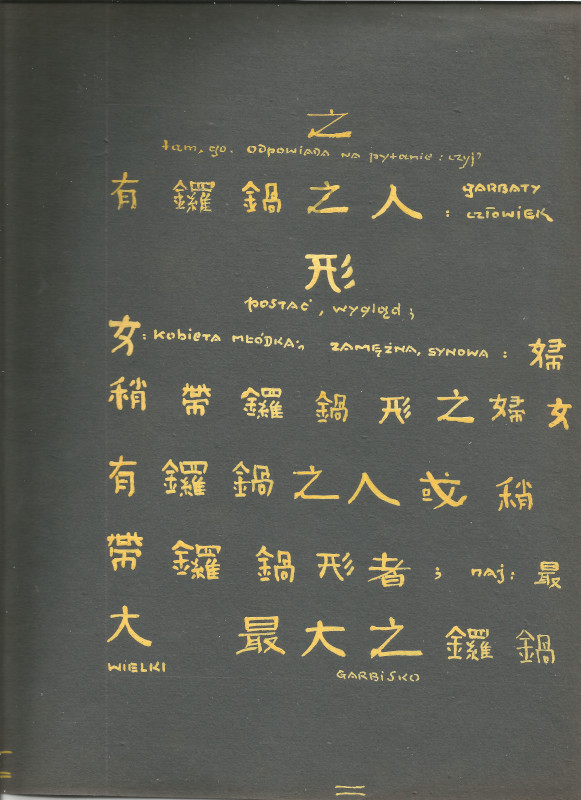 之
tam, go. ODPOWIADA NA pytanie: czyj?
有 鑼 鍋 之 人 : GARBATY CZŁOWIEK
形
POSTAĆ, wygląd;
女: KObiETA MŁÓDKA:, ZAMĘŻNA, SYNOWA: 婦
稍 帶 鑼 鍋 形 之 婦 女
有 鑼 鍋 之 人 或 稍
帶 鑼 鍋 形 者 ; naj: 最
大 最 大 之 鑼 鍋
WIELKI GARBISKO